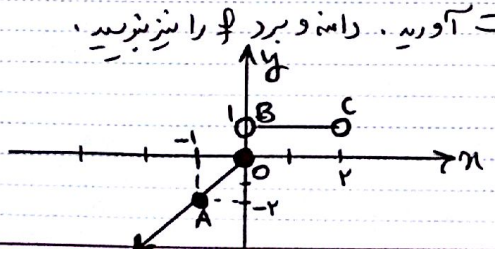 آورید. دامنه و برد f را نیز بنویسید.
y
1 B C
-1
O ۲ x
A -۲